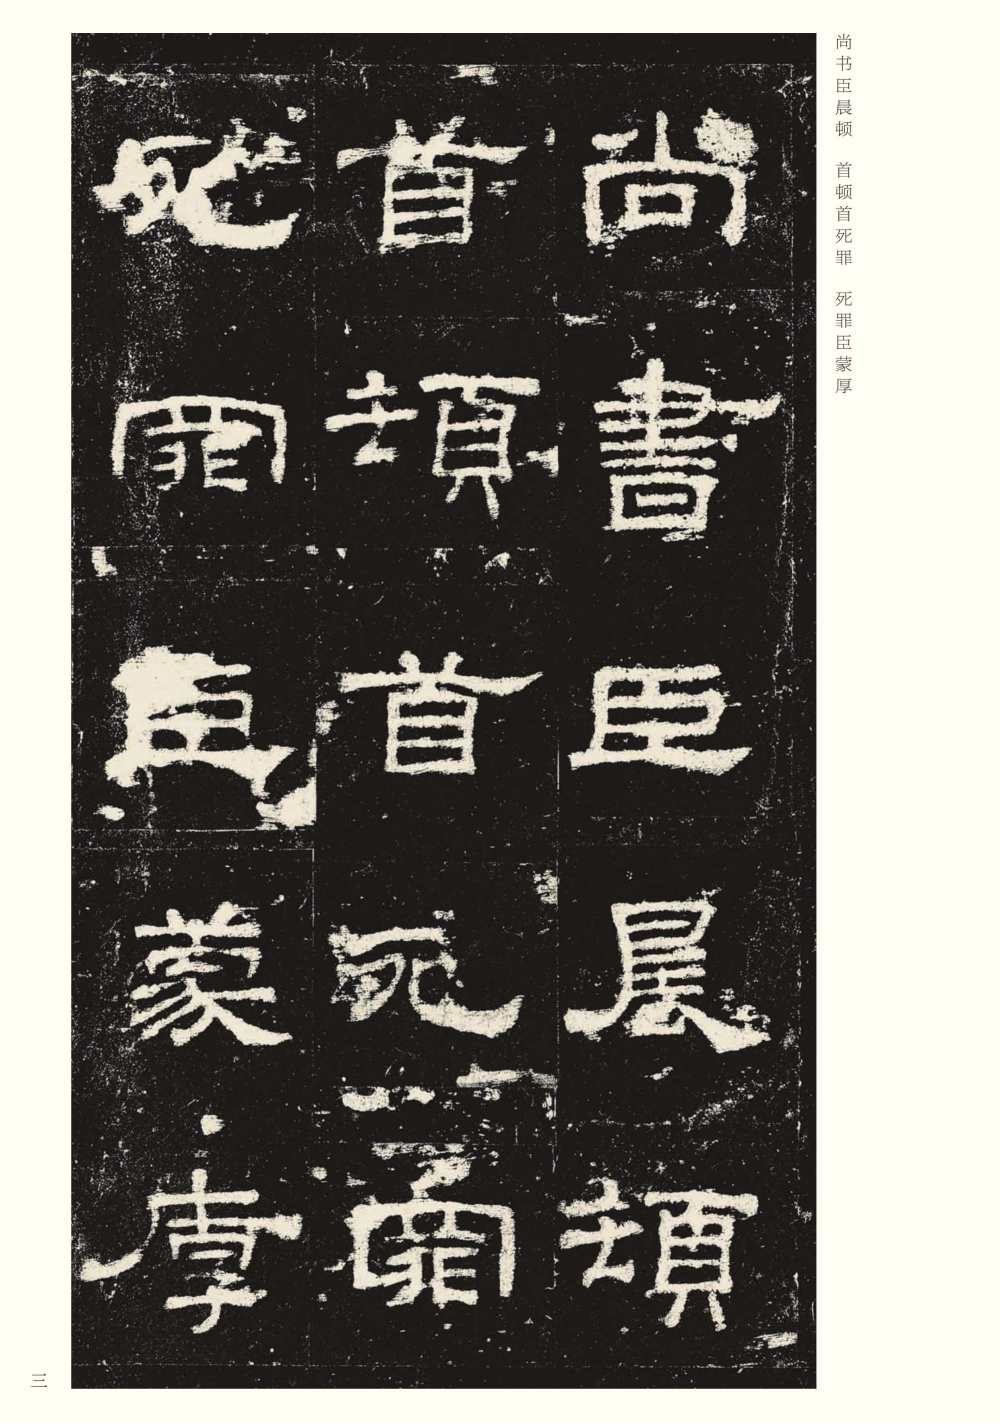 尚書臣晨頓
首頓首死罪
死罪臣蒙厚
尚书臣晨顿 首顿首死罪 死罪臣蒙厚
三